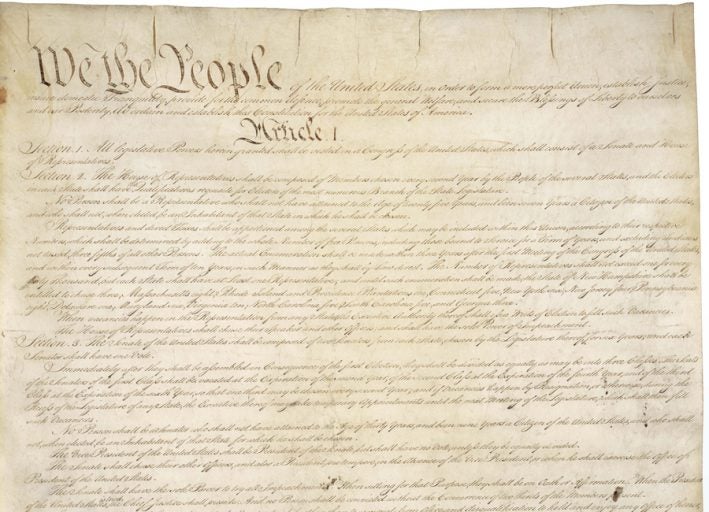 We the People of the United States, in Order to form a more perfect Union, establish Justice,
insure domestic Tranquility, provide for the common defence, promote the general Welfare, and secure the Blessings of Liberty to ourselves
and our Posterity, do ordain and establish this Constitution for the United States of America.
Article. I.
Section. 1. All legislative Powers herein granted shall be vested in a Congress of the United States, which shall consist of a Senate and House
of Representatives.
Section. 2. The House of Representatives shall be composed of Members chosen every second Year by the People of the several States, and the Electors
in each State shall have the Qualifications requisite for Electors of the most numerous Branch of the State Legislature.
No Person shall be a Representative who shall not have attained to the Age of twenty five Years, and been seven Years a Citizen of the United States,
and who shall not, when elected, be an Inhabitant of that State in which he shall be chosen.
Representatives and direct Taxes shall be apportioned among the several States which may be included within this Union, according to their respective
Numbers, which shall be determined by adding to the whole Number of free Persons, including those bound to Service for a Term of Years, and excluding Indians
not taxed, three fifths of all other Persons. The actual Enumeration shall be made within three Years after the first Meeting of the Congress of the United States,
and within every subsequent Term of ten Years, in such Manner as they shall by Law direct. The Number of Representatives shall not exceed one for every
thirty Thousand, but each State shall have at Least one Representative; and until such enumeration shall be made, the State of New Hampshire shall be
entitled to chuse three, Massachusetts eight, Rhode Island and Providence Plantations one, Connecticut five, New York six, New Jersey four, Pennsylvania
eight, Delaware one, Maryland six, Virginia ten, North Carolina five, South Carolina five, and Georgia three.
When vacancies happen in the Representation from any State, the Executive Authority thereof shall issue Writs of Election to fill such Vacancies.
The House of Representatives shall chuse their Speaker and other Officers; and shall have the sole Power of Impeachment.
Section. 3. The Senate of the United States shall be composed of two Senators from each State, chosen by the Legislature thereof, for six Years; and each
Senator shall have one Vote.
Immediately after they shall be assembled in Consequence of the first Election, they shall be divided as equally as may be into three Classes. The Seats
of the Senators of the first Class shall be vacated at the Expiration of the second Year, of the second Class at the Expiration of the fourth Year, and of the third
Class at the Expiration of the sixth Year, so that one third may be chosen every second Year; and if Vacancies happen by Resignation, or otherwise, during the
Recess of the Legislature of any State, the Executive thereof may make temporary Appointments until the next Meeting of the Legislature, which shall then fill
such Vacancies.
No Person shall be a Senator who shall not have attained to the Age of thirty Years, and been nine Years a Citizen of the United States, and who shall
not, when elected, be an Inhabitant of that State for which he shall be chosen.
The Vice President of the United States shall be President of the Senate, but shall have no Vote, unless they be equally divided.
The Senate shall chuse their other Officers, and also a President pro tempore, in the Absence of the Vice President, or when he shall exercise the Office of
President of the United States.
The Senate shall have the sole Power to try all Impeachments. When sitting for that Purpose, they shall be on Oath or Affirmation. When the President
of the United States the Chief Justice shall preside: And no Person shall be convicted without the Concurrence of two thirds of the Members present.